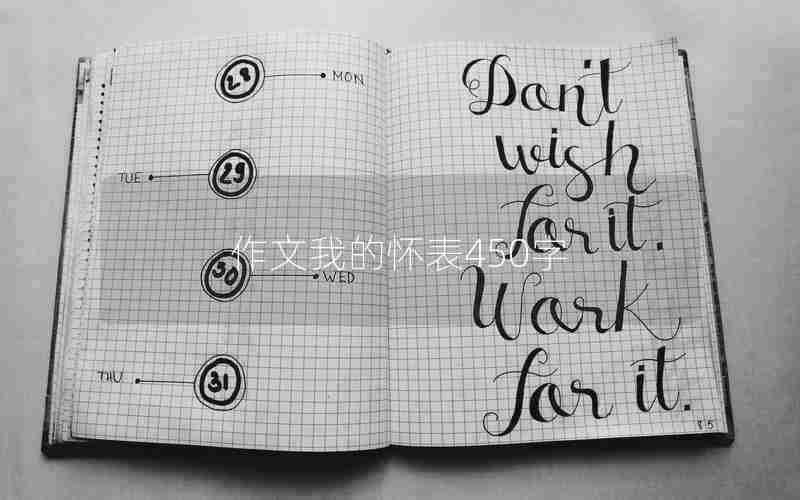 28 MON
TUE 29
30 WED
THU 31
Don't
wish
for it.
Work
for it.
85
作文我的怀表450字